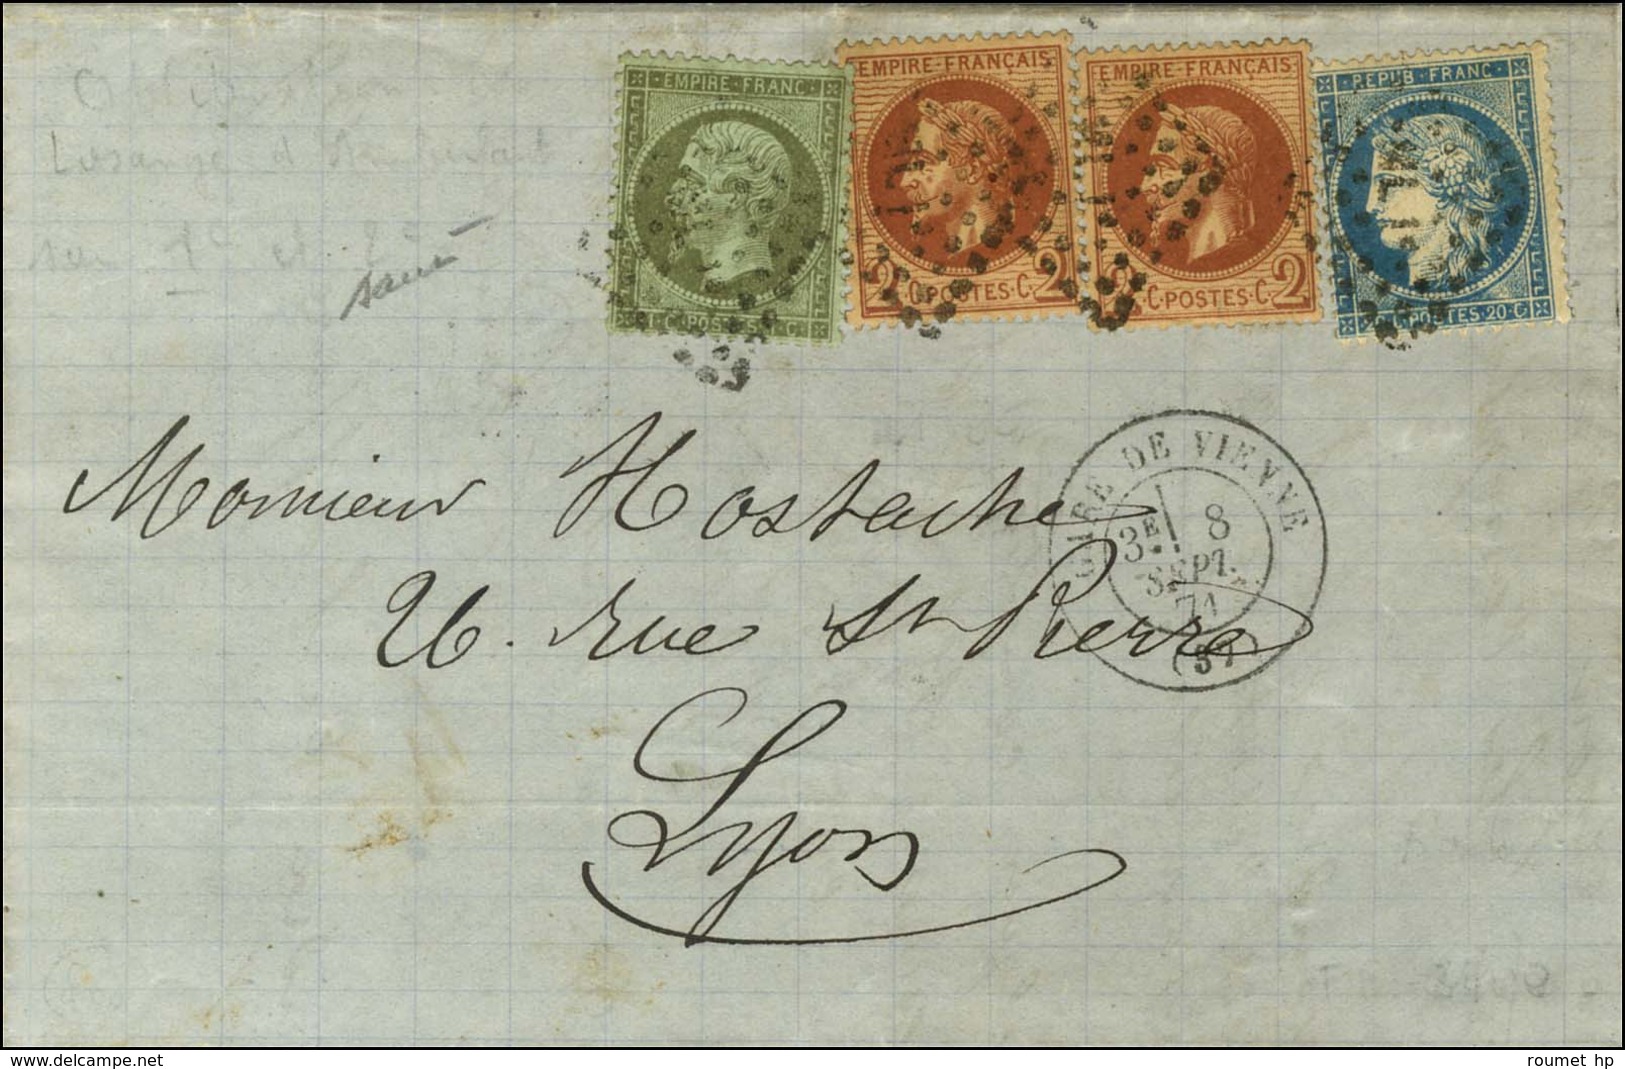 EMPIRE FRANC
C. POSTES 1 C.
EMPIRE FRANÇAIS
2 C. POSTES C. 2
EMPIRE FRANÇAIS
C. POSTES C. 2
REPUB. FRANC.
C. POSTES. 20. C.
Losange
sur 1c et 2
Monsieur Hostache
26. rue St Pierre
Lyon
GARE DE VIENNE
3E 8
SEPT.
71
(37)
www.delcampe.net
roumet hp